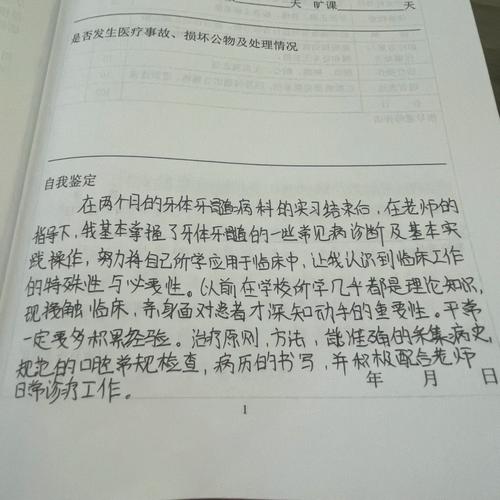 天 旷课 天
是否发生医疗事故、损坏公物及处理情况
自我鉴定
在两个月的牙体牙髓病科的实习结束后,在老师的
指导下,我基本掌握了牙体牙髓的一些常见病诊断及基本实
践操作,努力将自己所学应用于临床中,让我认识到临床工作
的特殊性与必要性。以前在学校所学几乎都是理论知识,
现接触临床,亲身面对患者才深知动手的重要性。平常
一定要多积累经验。治疗原则,方法,能准确的采集病史,
规范的口腔常规检查,病历的书写,并积极配合老师
日常诊疗工作。
年 月 日
1